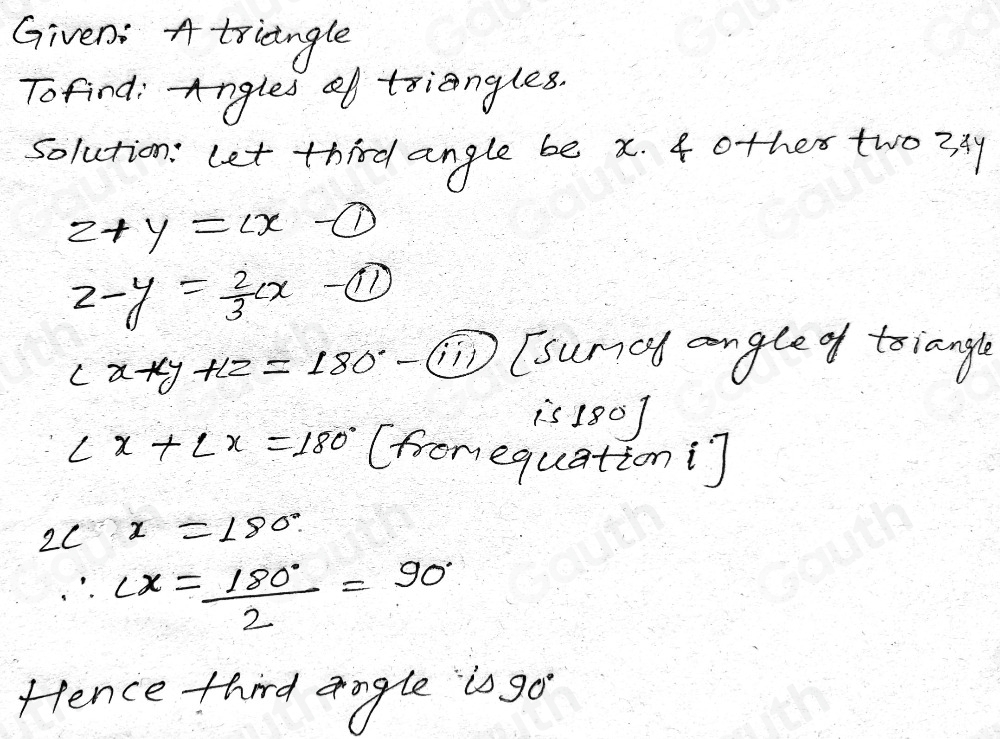 Given: A triangle
To find: Angles of triangles.
Solution: Let third angle be x. & other two z,&y
z+y = ∠x - (i)
z-y = 2/3 ∠x - (ii)
∠x+∠y+∠z = 180° - (iii) [sum of angle of triangle
is 180]
∠x + ∠x = 180° [from equation i]
2∠ x = 180°.
∴ ∠x = 180°/2 = 90°
Hence third angle is 90°